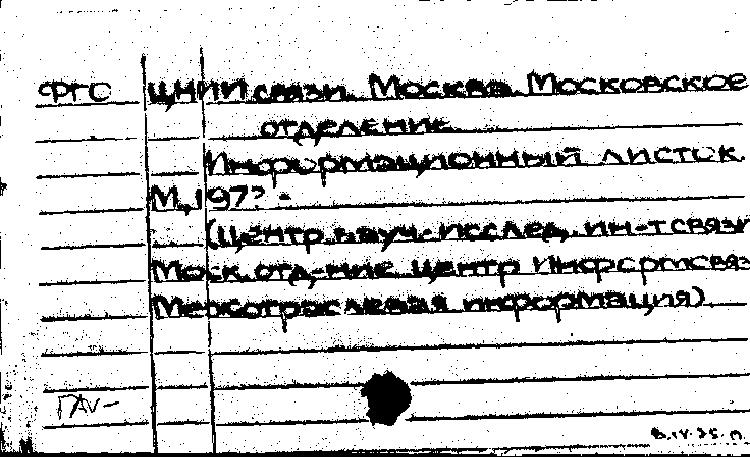 ФГО ЦНИИ связи. Москва. Московское
отделение.
Информационный листок.
М., 197? -
(Центр. науч.-исслед. ин-т связи
Моск. отд-ние центр Информсвяз
Межотраслевая информация)
ГАУ-